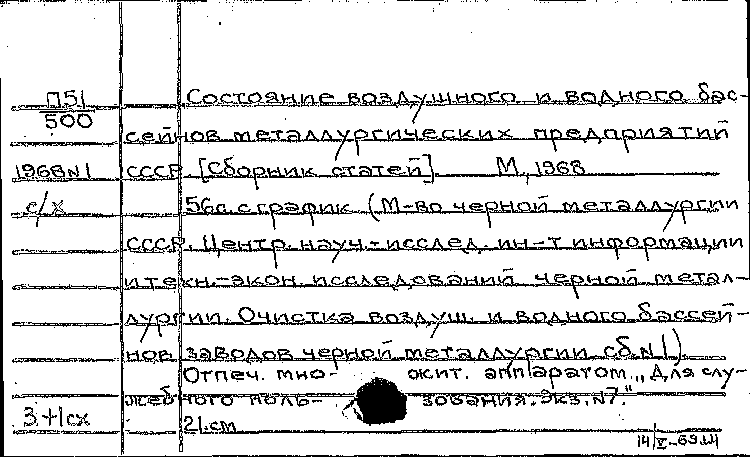 П51
500
1968 N1
с/х
3.+1сх
Состояние воздушного и водного бас-
сейнов металлургических предприятий
СССР. [Сборник статей]. М, 1968
56с. с график (М-во черной металлургии
СССР. Центр. науч.-исслед. ин-т информации
и техн.-экон. исследований черной метал-
лургии. Очистка воздуш. и водного бассей-
нов заводов черной металлургии сб. N1)
Отпеч. мно- жит. аппаратом. „Для слу-
жебного поль- зования. Экз. N7."
21.см
14/V-69